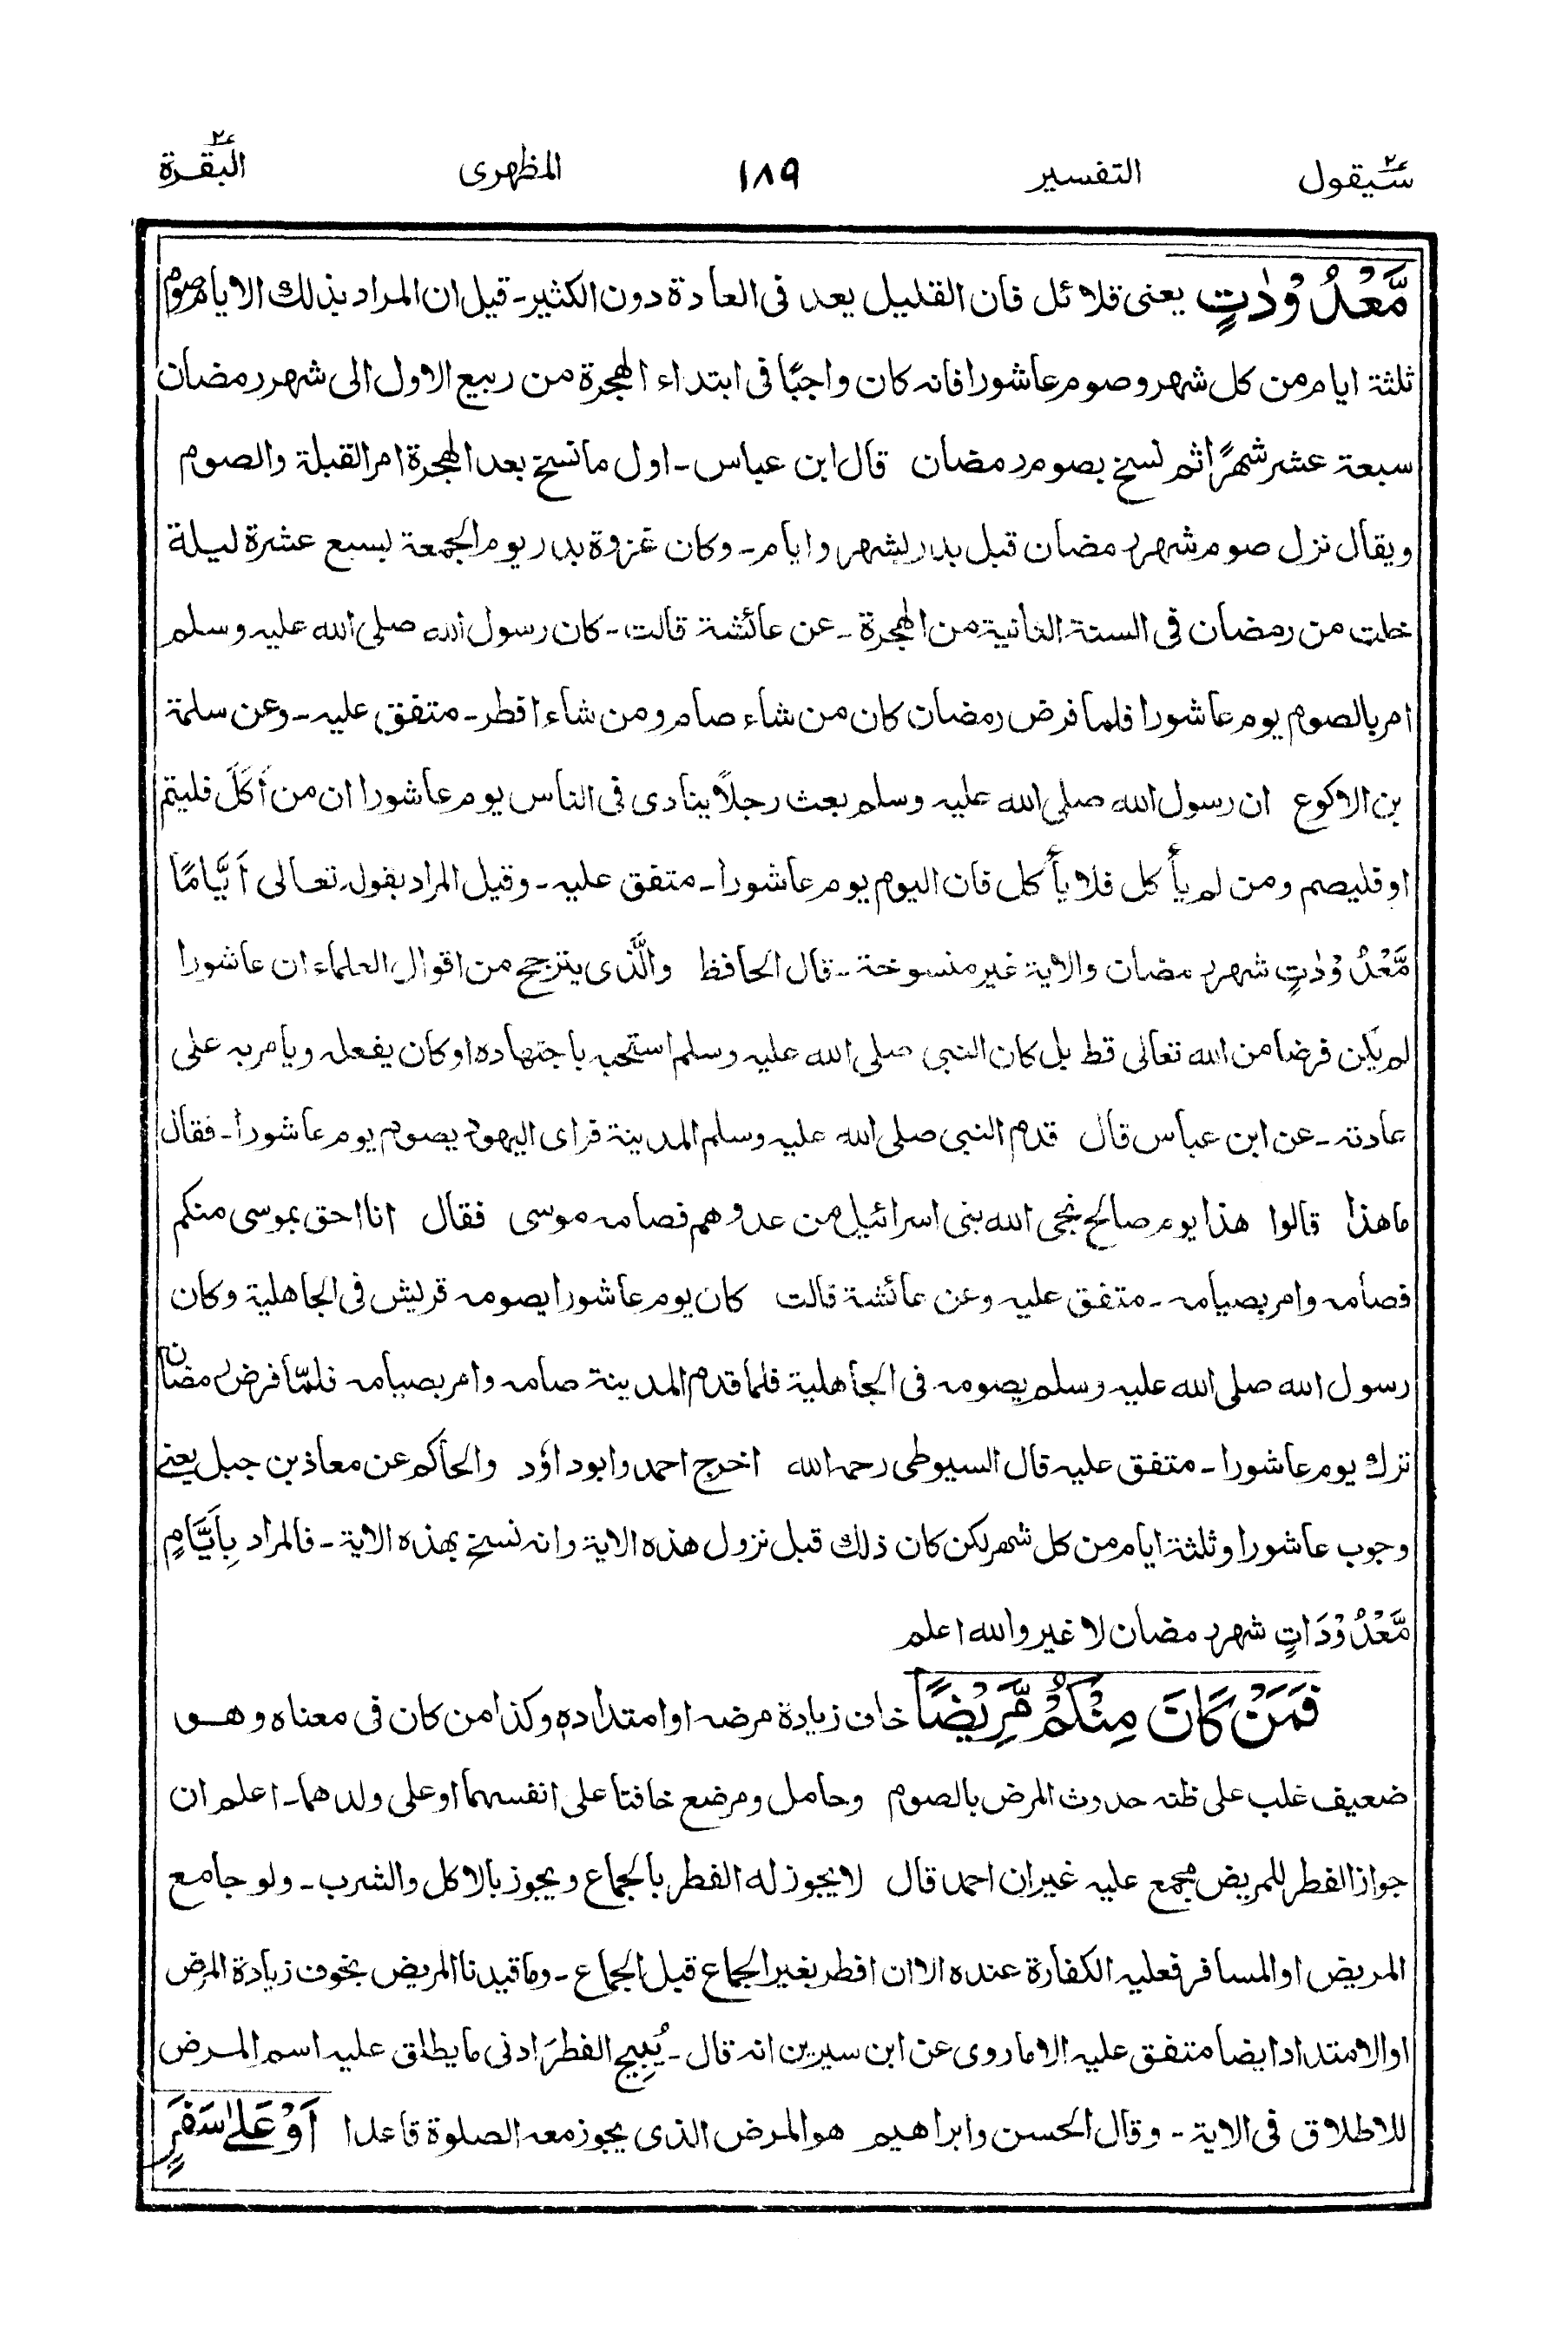 سيقول
التفسير
١٨٩
المظهرى
البقرة
مَّعْدُوْدٰتٍ يعنى قلائل فان القليل يعد فى العادة دون الكثير۔ قيل ان المراد بذلك الايام صوم
ثلثة ايام من كل شهر وصوم عاشورا فانه كان واجبًا فى ابتداء الهجرة من ربيع الاول الى شهر رمضان
سبعة عشر شهرًا ثم نسخ بصوم رمضان قال ابن عباس۔ اول ما نسخ بعد الهجرة امر القبلة والصوم
ويقال نزل صوم شهر رمضان قبل بدر بشهر وايام۔ وكان غزوة بدر يوم الجمعة لسبع عشرة ليلة
خلت من رمضان فى السنة الثانية من الهجرة۔ عن عائشة قالت۔ كان رسول الله صلى الله عليه وسلم
امر بالصوم يوم عاشورا فلما فرض رمضان كان من شاء صام ومن شاء افطر۔ متفق عليه۔ وعن سلمة
بن الاكوع ان رسول الله صلى الله عليه وسلم بعث رجلًا ينادى فى الناس يوم عاشورا ان من أَكَلَ فليتم
او فليصم ومن لم يأكل فلا يأكل فان اليوم يوم عاشورا۔ متفق عليه۔ وقيل المراد بقوله تعالى اَيَّامًا
مَّعْدُوْدٰتٍ شهر رمضان والاية غير منسوخة۔ قال الحافظ والَّذى يترجح من اقوال العلماء ان عاشورا
لم يكن فرضا من الله تعالى قط بل كان النبى صلى الله عليه وسلم استحبه باجتهاده او كان يفعله ويامر به على
عادته۔ عن ابن عباس قال قدم النبى صلى الله عليه وسلم المدينة فراى اليهود يصوم يوم عاشورا۔ فقال
ما هذا قالوا هذا يوم صالح نجى الله بنى اسرائيل من عدوهم فصامه موسى فقال انا احق بموسى منكم
فصامه وامر بصيامه۔ متفق عليه وعن عائشة قالت كان يوم عاشورا يصومه قريش فى الجاهلية وكان
رسول الله صلى الله عليه وسلم يصومه فى الجاهلية فلما قدم المدينة صامه وامر بصيامه فلمّا فرض رمضان
ترك يوم عاشورا۔ متفق عليه قال السيوطى رحمه الله اخرج احمد وابوداؤد والحاكم عن معاذ بن جبل يعنى
وجوب عاشورا وثلثة ايام من كل شهر لكن كان ذلك قبل نزول هذه الاية وانه نسخ بهذه الاية۔ فالمراد بِاَيَّامٍ
مَّعْدُوْدَاتٍ شهر رمضان لا غير والله اعلم
فَمَنْ كَانَ مِنْكُمْ مَّرِيْضًا خاف زيادة مرضه او امتداده وكذا من كان فى معناه وهو
ضعيف غلب على ظنه حدوث المرض بالصوم وحامل ومرضع خافتا على انفسهما او على ولدهما۔ اعلم ان
جواز الفطر للمريض مجمع عليه غير ان احمد قال لا يجوز له الفطر بالجماع ويجوز بالاكل والشرب۔ ولو جامع
المريض او المسافر فعليه الكفارة عنده الا ان افطر بغير الجماع قبل الجماع۔ وما قيدنا المريض بخوف زيادة المرض
او الامتداد ايضا متفق عليه الا ما روى عن ابن سيرين انه قال۔ يُبِيح الفطرَ ادنى ما يطلق عليه اسم المرض
للاطلاق فى الاية۔ وقال الحسن وابراهيم هو المرض الذى يجوز معه الصلوة قاعدا اَوْ عَلٰى سَفَرٍ